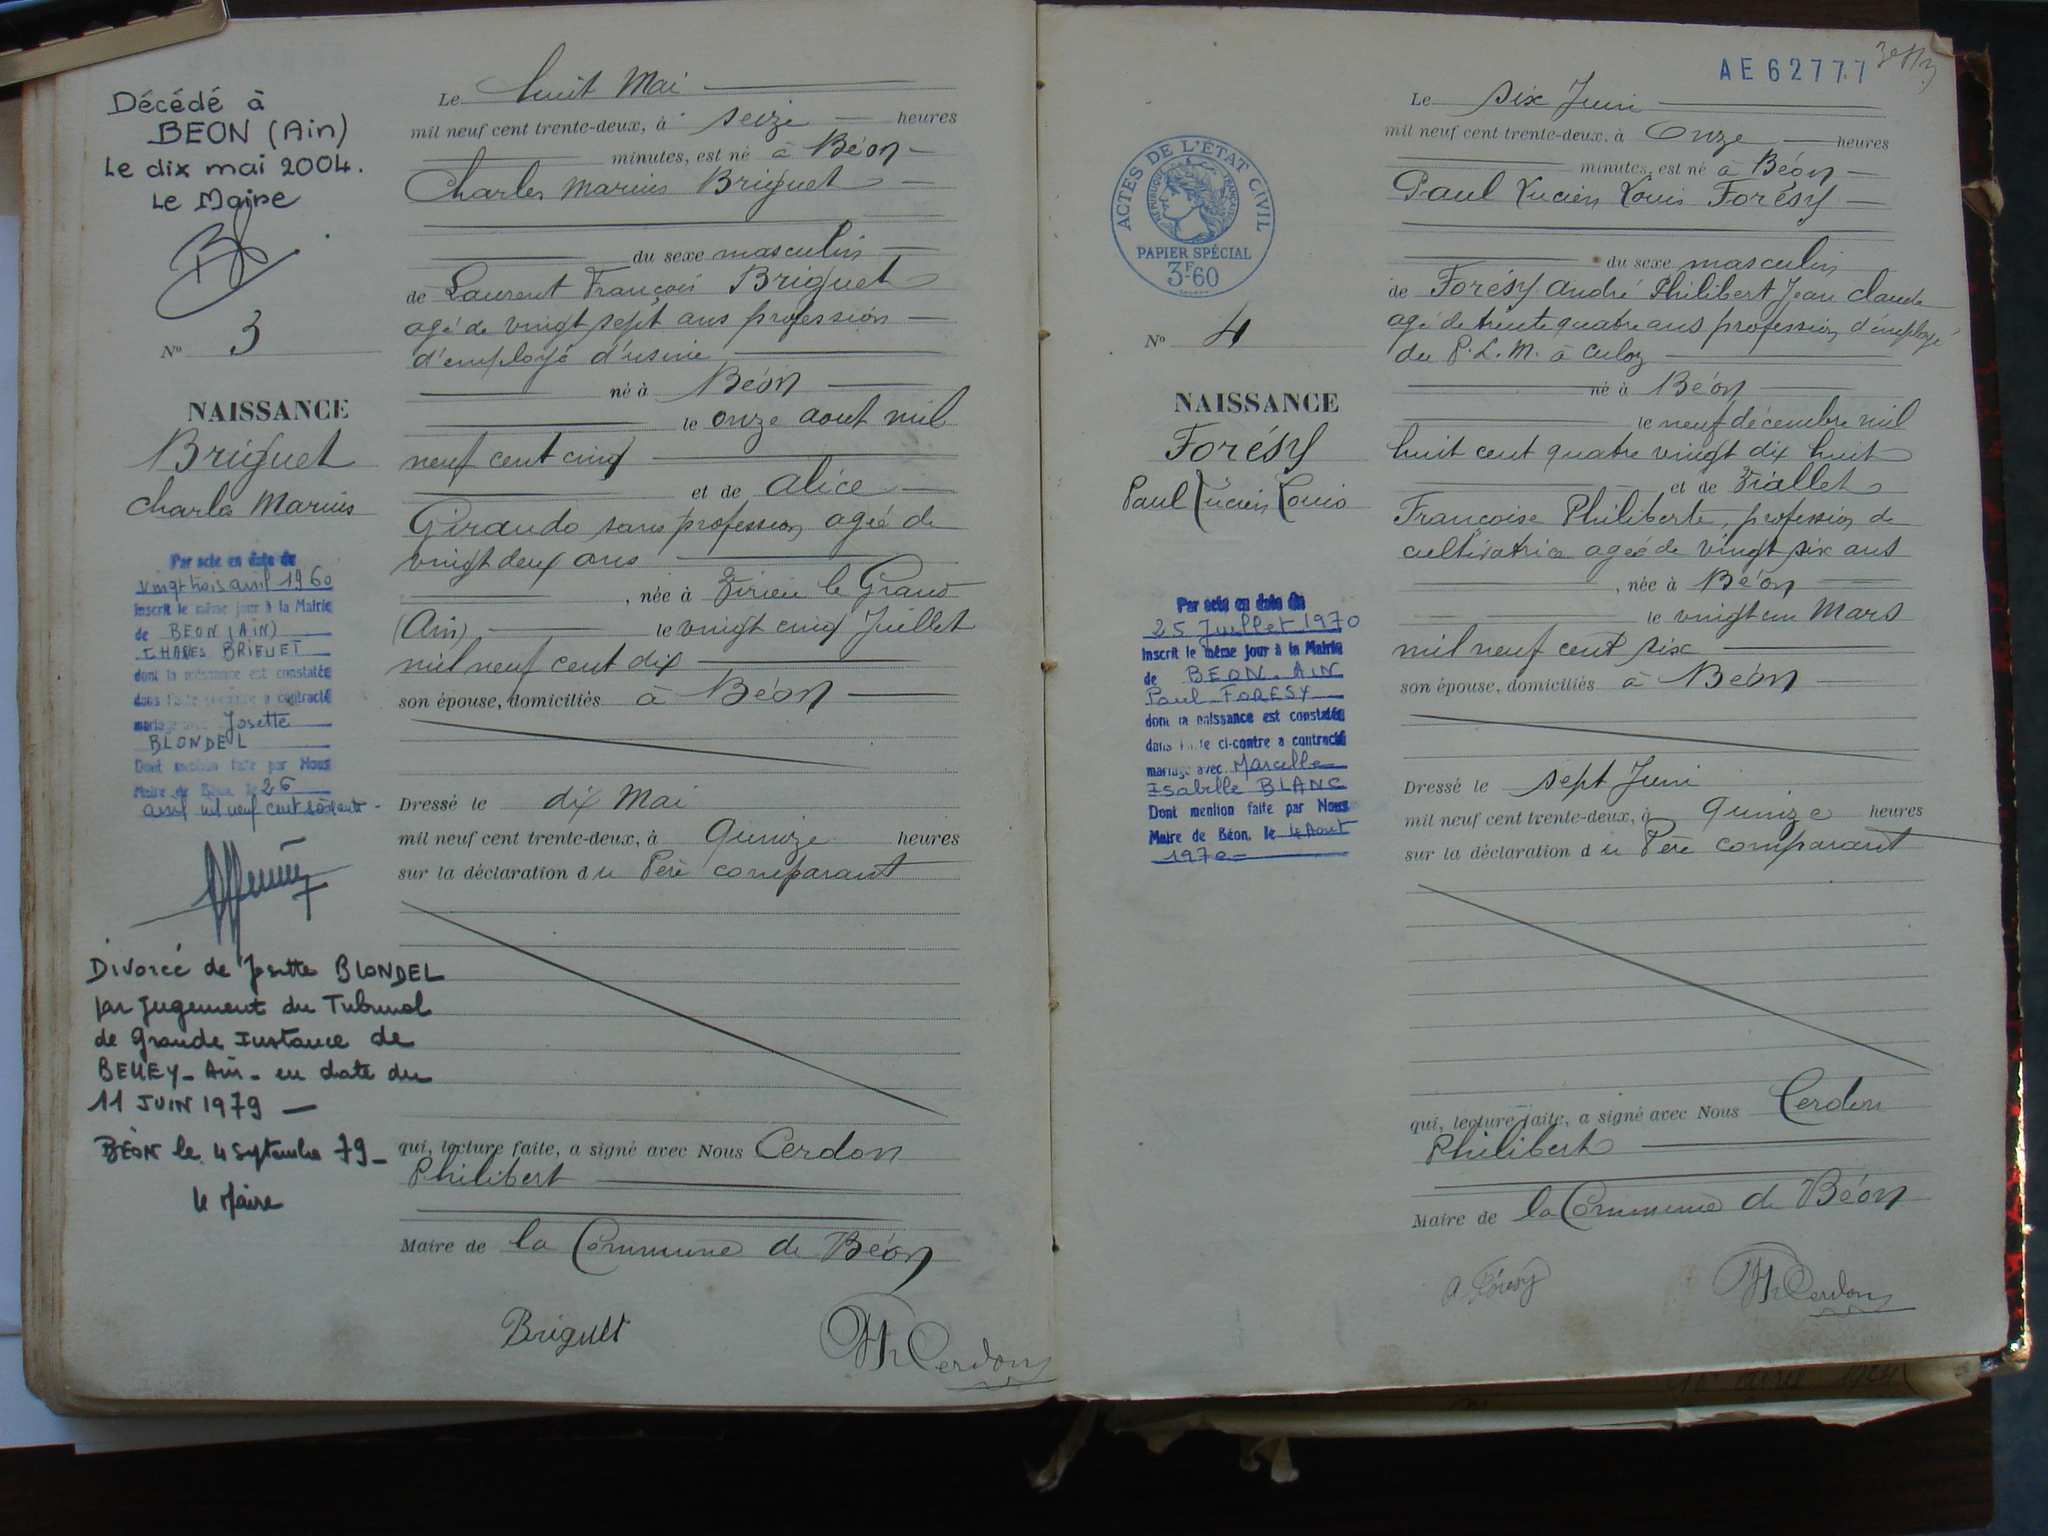 Décédé à
BEON (Ain)
Le dix mai 2004.
Le Maire
N° 3
NAISSANCE
Briguet
Charles Marius
Par acte en date du
vingt trois avril 1960
inscrit le même jour à la Mairie
de BEON (AIN)
CHARLES BRIGUET
dont la naissance est constatée
dans l'acte ci-contre a contracté
mariage avec Josette
BLONDEL
Dont mention faite par Nous
Maire de Béon le 26
avril mil neuf cent soixante -
Divorcé de Josette BLONDEL
par jugement du Tribunal
de Grande Instance de
BELLEY - Ain - en date du
11 JUIN 1979 —
BÉON le 4 Septembre 79 -
le Maire
Le huit Mai
mil neuf cent trente-deux, à seize heures
minutes, est né à Béon
Charles Marius Briguet
du sexe masculin
de Laurent François Briguet
agé de vingt sept ans profession
d'employé d'usine
né à Béon
le onze aout mil
neuf cent cinq
et de Alice
Girando sans profession agée de
vingt deux ans
, née à Virieu le Grand
(Ain) le vingt cinq Juillet
mil neuf cent dix
son épouse, domiciliés à Béon
Dressé le dix Mai
mil neuf cent trente-deux, à quinze heures
sur la déclaration du Père comparant
qui, lecture faite, a signé avec Nous Cerdon
Philibert
Maire de la Commune de Béon
Briguet
Ph Cerdon
AE62777
ACTES DE L'ÉTAT CIVIL
RÉPUBLIQUE FRANÇAISE
PAPIER SPÉCIAL
3F60
N° 4
NAISSANCE
Forésy
Paul Lucien Louis
Par acte en date du
25 Juillet 1970
inscrit le même jour à la Mairie
de BEON - AIN
Paul FORESY
dont la naissance est constatée
dans l'acte ci-contre a contracté
mariage avec Marcelle
Isabelle BLANC
Dont mention faite par Nous
Maire de Béon, le 4 Aout
1970 -
Le six Juin
mil neuf cent trente-deux, à Onze heures
minutes, est né à Béon
Paul Lucien Louis Forésy
du sexe masculin
de Forésy André Philibert Jean Claude
agé de trente quatre ans profession d'employé
du P. L. M. à Culoz
né à Béon
le neuf décembre mil
huit cent quatre vingt dix huit
et de Triallet
Françoise Philiberte, profession de
cultivatrice agée de vingt six ans
, née à Béon
le vingt un Mars
mil neuf cent six
son épouse, domiciliés à Béon
Dressé le sept Juin
mil neuf cent trente-deux, à quinze heures
sur la déclaration du Père comparant
qui, lecture faite, a signé avec Nous Cerdon
Philibert
Maire de la Commune de Béon
A Forésy
Ph Cerdon